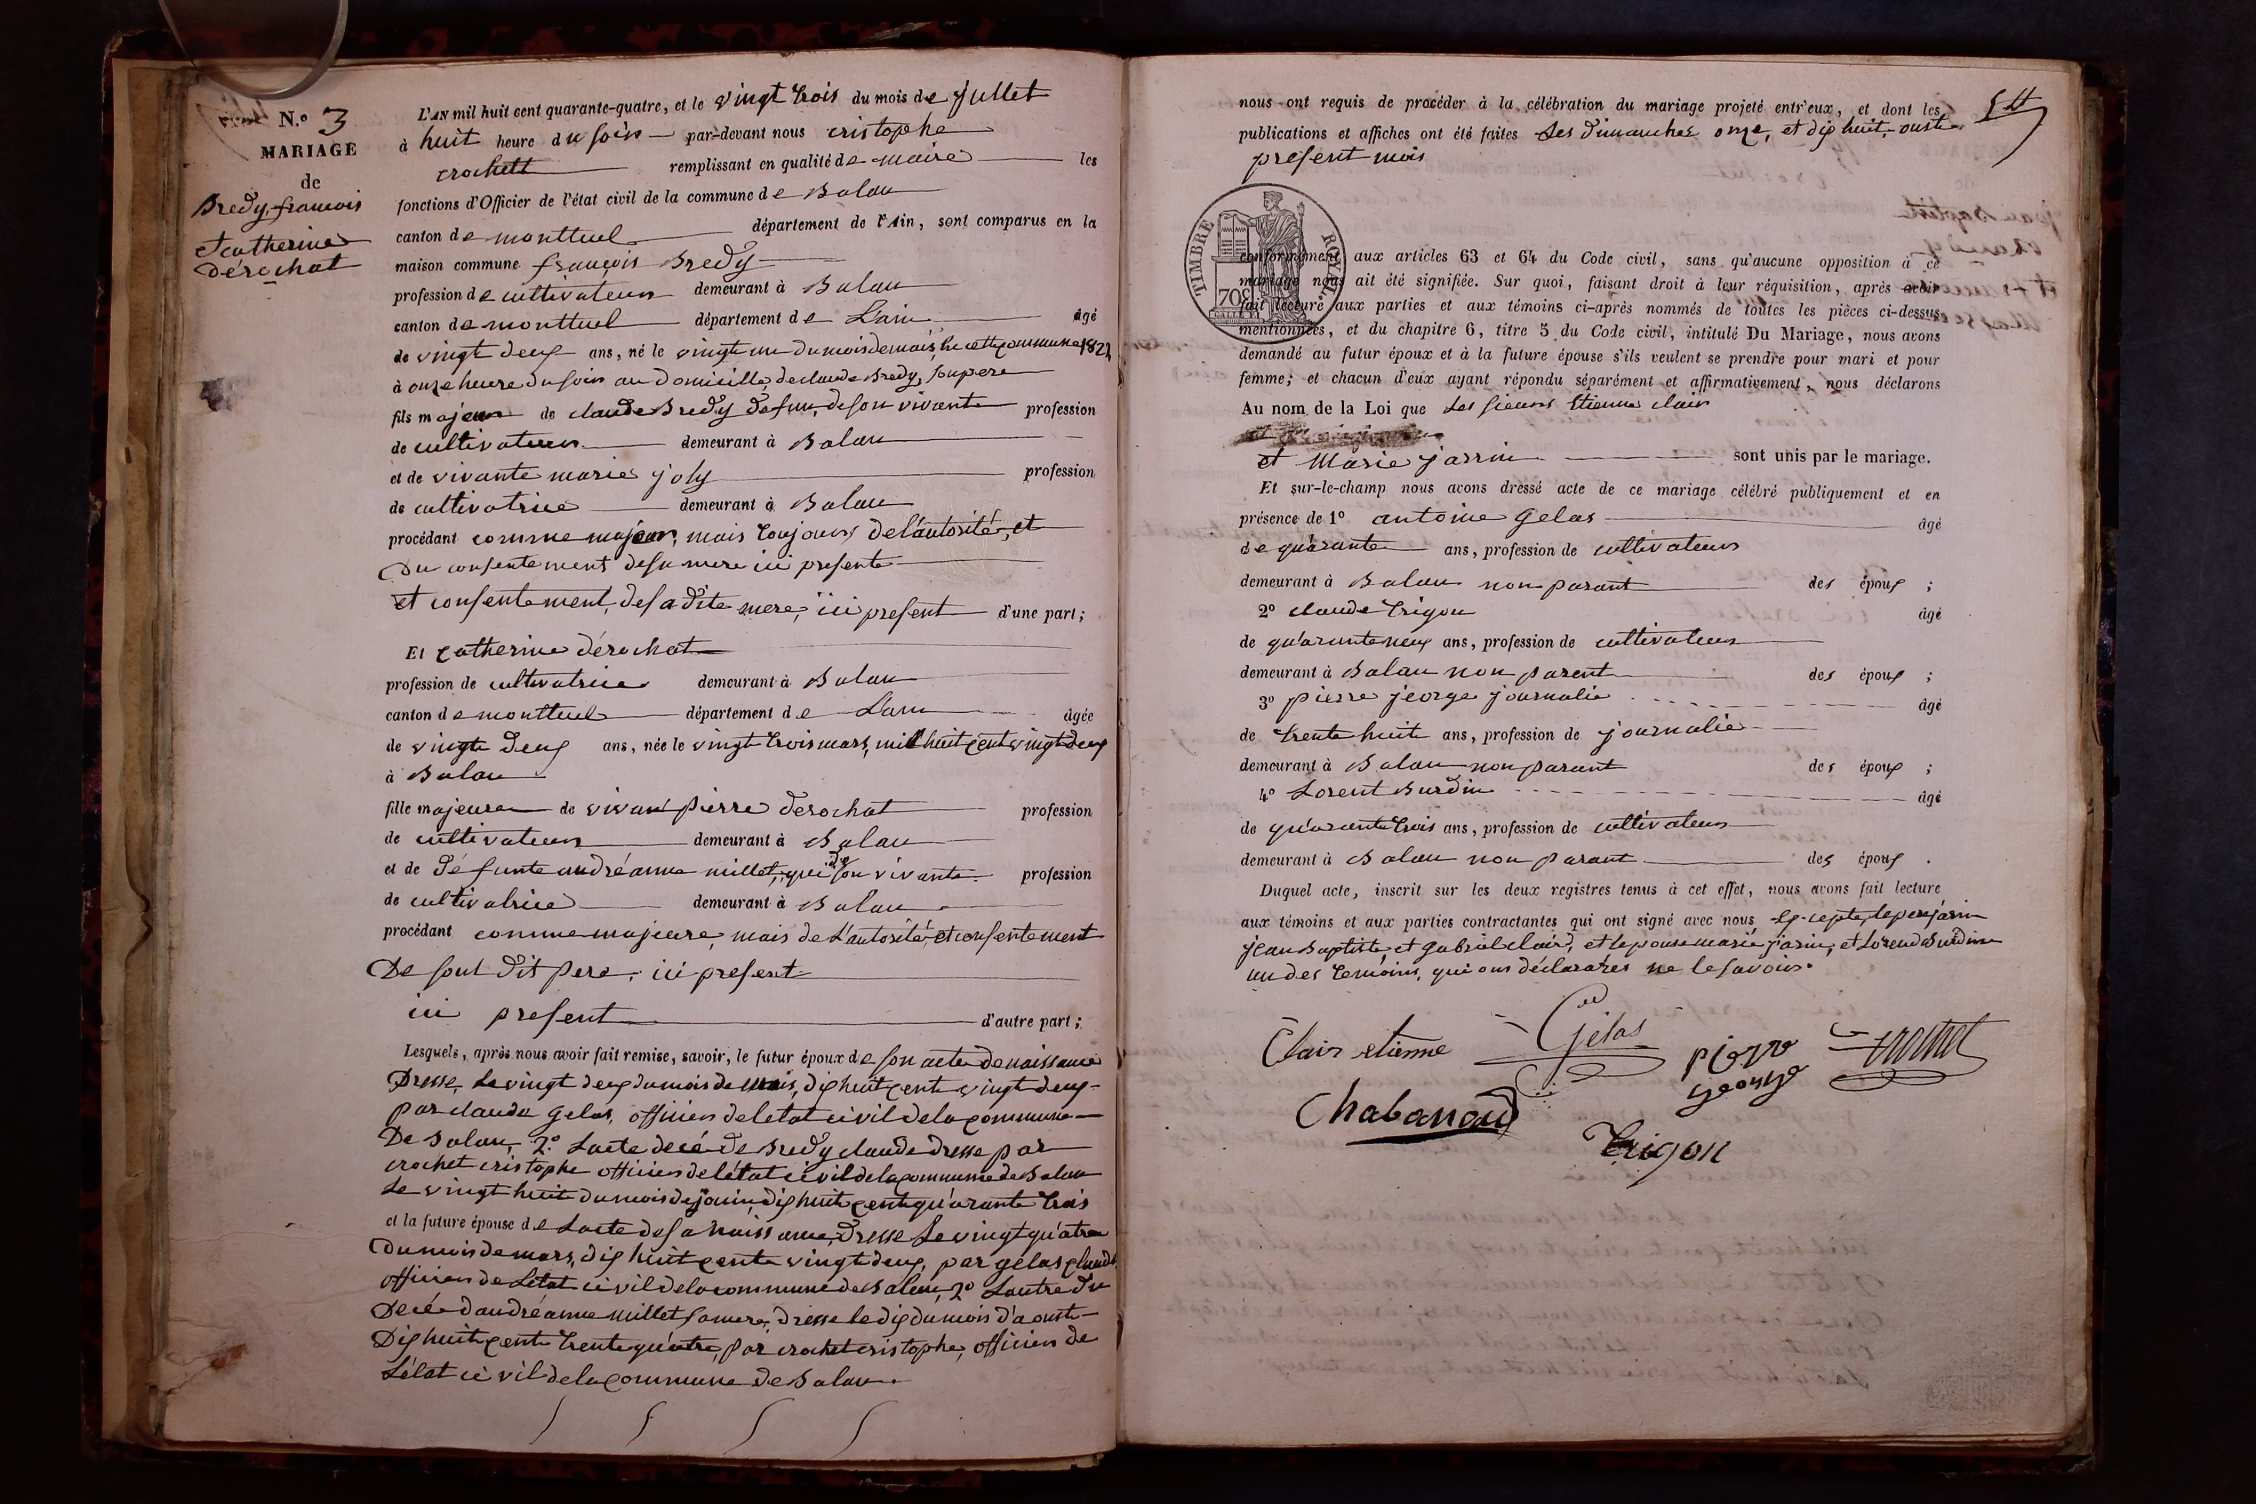 N.o 3
MARIAGE
de
Bredy, françois
et catherine
dérochat
L'AN mil huit cent quarante-quatre, et le vingt trois du mois de Jullet
à huit heure du soir par-devant nous cristophe
crochett remplissant en qualité de maire les
fonctions d'Officier de l'état civil de la commune de Balan
canton de montluel département de l'Ain, sont comparus en la
maison commune françois Bredy
profession de cultivateur demeurant à Balan
canton de montluel département de L'ain âgé
de vingt deux ans, né le vingt un du mois de mais, de cette commune 1822
à onze heure du soir au domicille, de claude Bredy, son pere
fils majeur de claude Bredy defun, de son vivant profession
de cultivateur demeurant à Balan
et de vivante marie joly profession
de cultivatrice demeurant à Balan
procédant comme majeur, mais toujours de l'autorité, et
du consentement de sa mere ici presente
et consentement, de sa dite mere, ici present d'une part;
Et catherine dérochat
profession de cultivatrice demeurant à Balan
canton de montluel département de L'ain âgée
de vingt deux ans, née le vingt trois mars, mil huit cent vingt deux
à Balan
fille majeure de vivan pierre derochat profession
de cultivateur demeurant à Balan
et de défunte andréanne millet, qui de son vivante profession
de cultivatrice demeurant à Balan
procédant comme majeure, mais de L'autorité et consentement
De sont dit pere, ici present
ici present d'autre part;
Lesquels, après nous avoir fait remise, savoir, le futur époux de son acte de naissance
Dresse, Le vingt deux du mois de mais, dix huit cent vingt deux
par claude gelas, officier de letat civil de la commune
De Balan, 2.o Lacte decé de Bredy claude dresse par
crochet cristophe officier de létat civil de la commune de Balan
Le vingt huit du mois de jouin, dix huit cent quarante trois
et la future épouse de Lacte de sa naissance, Dresse Le vingt quatre
Du mois de mars, dix huit cent vingt deux, par gélas claude
officier de Létat civil de la commune de Balan, 2o Lautre du
Decé d'andréanne millet sa mere, dresse le dix du mois d'aoust
Dix huit cent trente quatre, par crochet cristophe, officier de
Létat civil de la commune de Balan.
nous ont requis de procéder à la célébration du mariage projeté entr'eux, et dont les
publications et affiches ont été faites Les dimanches onze, et dix huit, oust
present mois
TIMBRE ROYAL
70c
conformément aux articles 63 et 64 du Code civil, sans qu'aucune opposition à ce
mariage nous ait été signifiée. Sur quoi, faisant droit à leur réquisition, après avoir
fait lecture aux parties et aux témoins ci-après nommés de toutes les pièces ci-dessus
mentionnées, et du chapitre 6, titre 5 du Code civil, intitulé Du Mariage, nous avons
demandé au futur époux et à la future épouse s'ils veulent se prendre pour mari et pour
femme; et chacun d'eux ayant répondu séparément et affirmativement, nous déclarons
Au nom de la Loi que Les sieurs Etienne clair
et Marie jarrin sont unis par le mariage.
Et sur-le-champ nous avons dressé acte de ce mariage célébré publiquement et en
présence de 1o antoine gelas âgé
de quarante ans, profession de cultivateur
demeurant à Balan non parant des époux ;
2o claude trigon âgé
de quarante neuf ans, profession de cultivateur
demeurant à Balan non parent des époux ;
3o pierre jeorge journalie âgé
de trente huit ans, profession de journalie
demeurant à Balan non parant des époux ;
4o Lorent Burdin âgé
de quarante trois ans, profession de cultivateur
demeurant à Balan non parant des époux .
Duquel acte, inscrit sur les deux registres tenus à cet effet, nous avons fait lecture
aux témoins et aux parties contractantes qui ont signé avec nous, excepte, le pere jarin
jean Baptiste, et gabriel clair, et lepouse marie jarin, et Lorend Burdin
un des temoins, qui ons déclarares ne le savoir.
Clair etienne
Gélas
pierre
george
crochet
Chabanoud
trigon